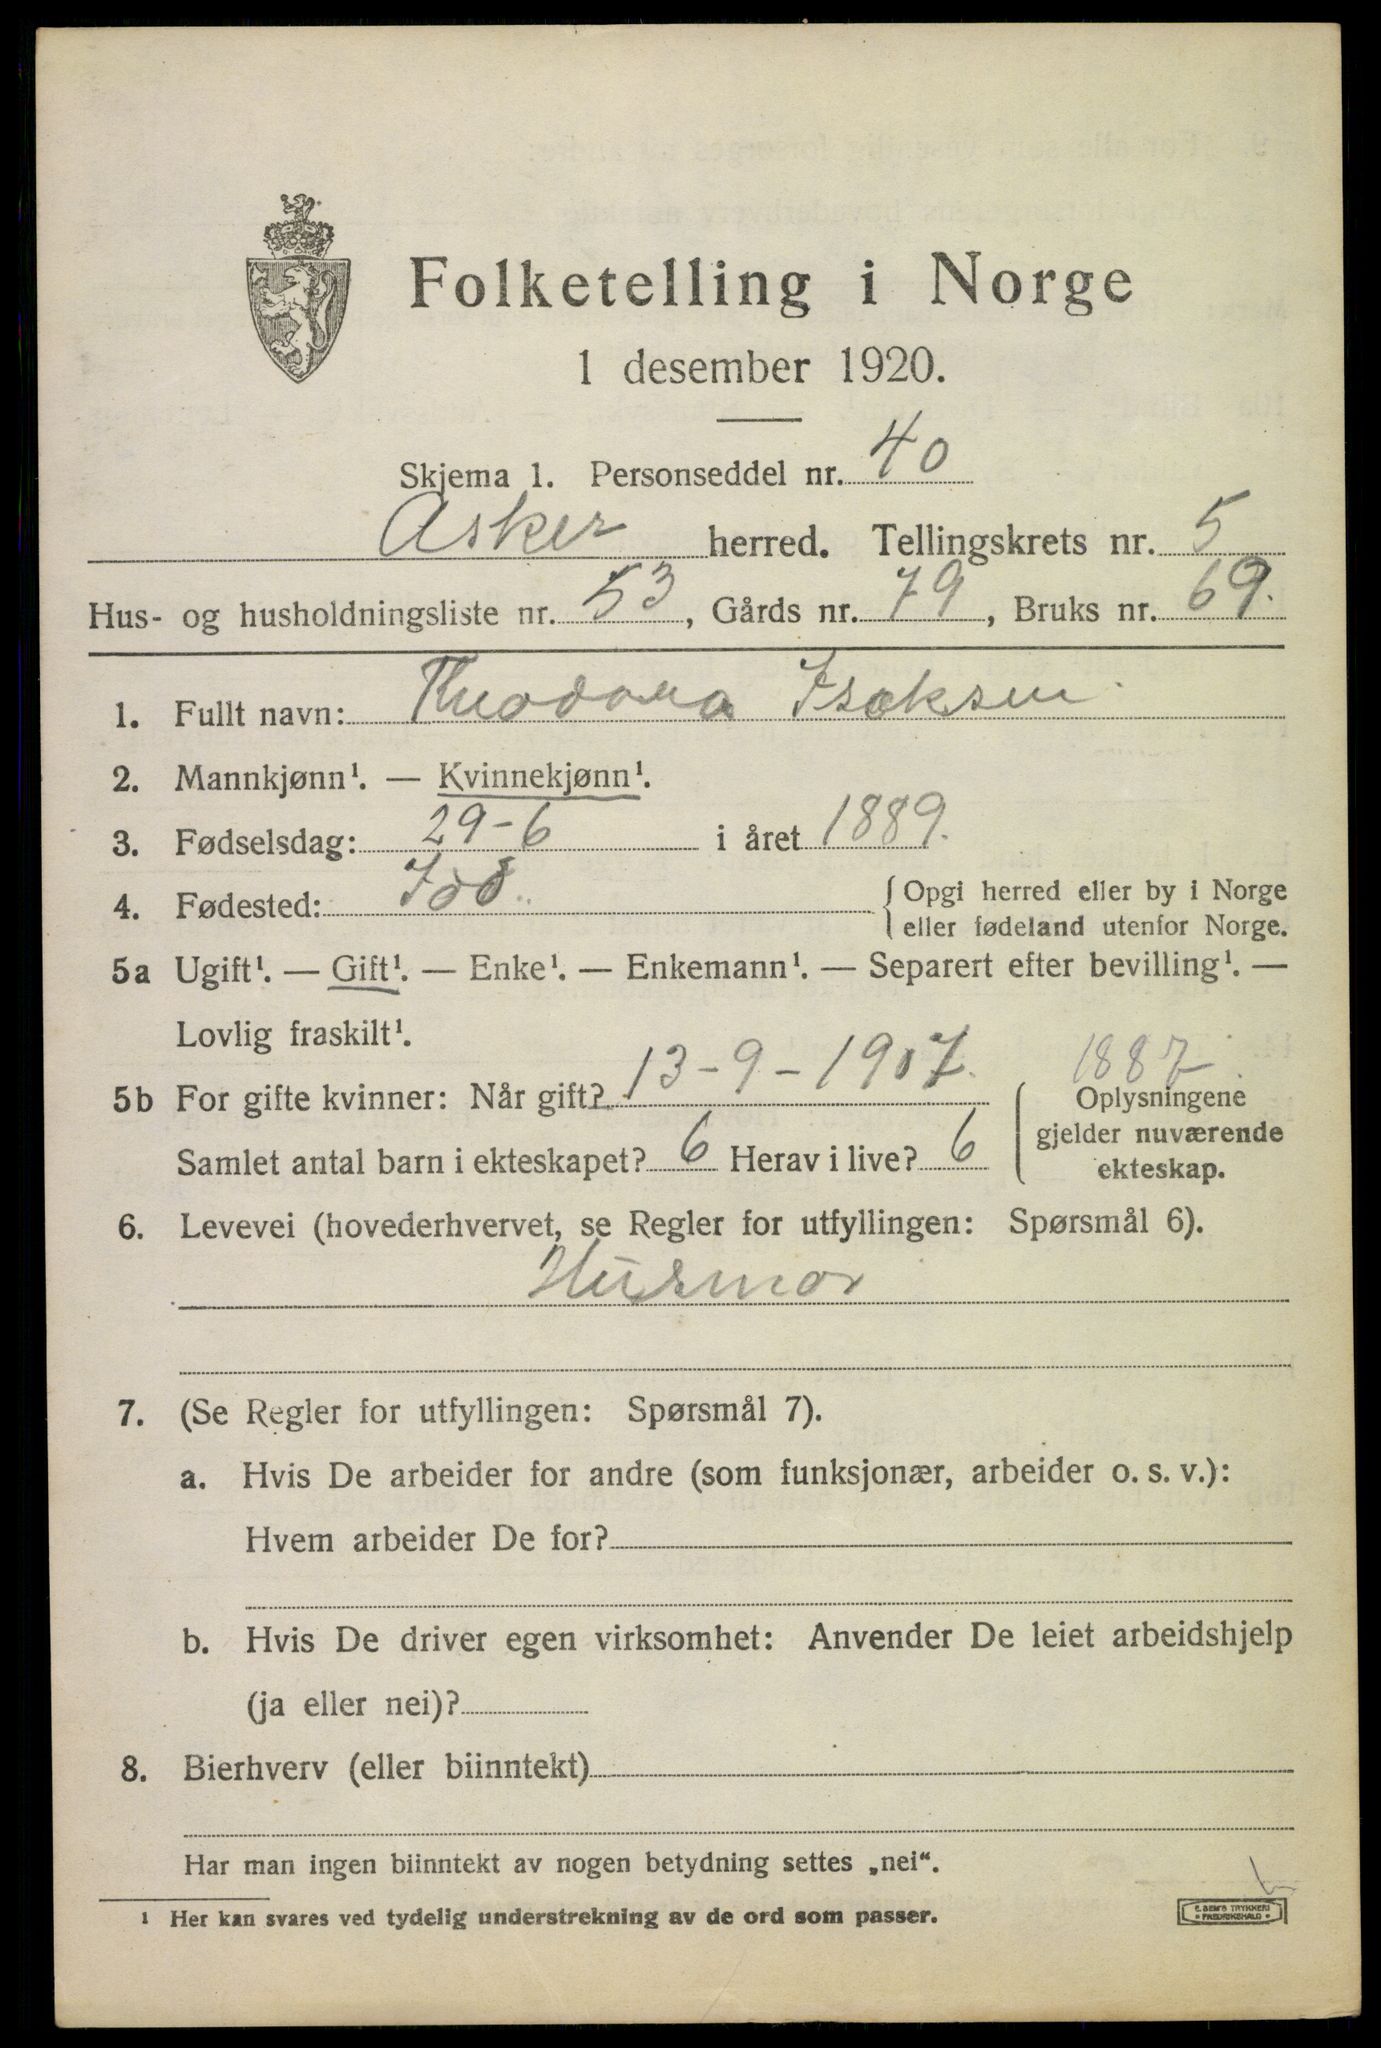 Folketelling i Norge
1 desember 1920.
Skjema 1. Personseddel nr. 40
Asker herred. Tellingskrets nr. 5
Hus- og husholdningsliste nr. 53, Gårds nr. 79, Bruks nr. 69.
1. Fullt navn: Theodora Isaksen
2. Mannkjønn¹. — Kvinnekjønn¹.
3. Fødselsdag: 29-6 i året 1889.
4. Fødested: { Opgi herred eller by i Norge
eller fødeland utenfor Norge.
5a Ugift¹. — Gift¹. — Enke¹. — Enkemann¹. — Separert efter bevilling¹. —
Lovlig fraskilt¹.
1887
5b For gifte kvinner: Når gift? 13-9-1907. Oplysningene
gjelder nuværende
Samlet antal barn i ekteskapet? 6 Herav i live? 6 ekteskap.
6. Levevei (hovederhvervet, se Regler for utfyllingen: Spørsmål 6).
Husmor
7. (Se Regler for utfyllingen: Spørsmål 7).
a. Hvis De arbeider for andre (som funksjonær, arbeider o. s. v.):
Hvem arbeider De for?
b. Hvis De driver egen virksomhet: Anvender De leiet arbeidshjelp
(ja eller nei)?
8. Bierhverv (eller biinntekt)
Har man ingen biinntekt av nogen betydning settes „nei“.
¹ Her kan svares ved tydelig understrekning av de ord som passer.
E. SEM'S TRYKKERI
FREDRIKSHALD